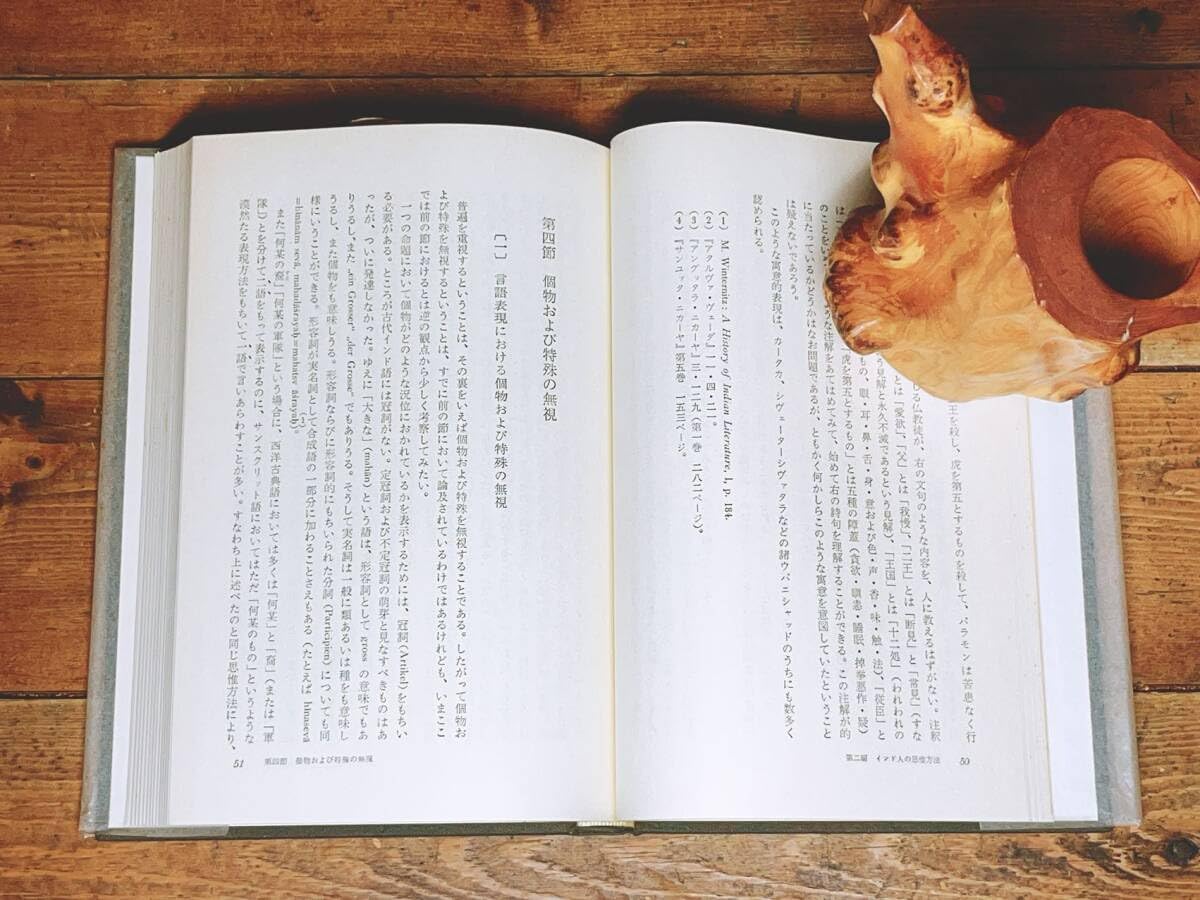 王を殺し、虎を第五とするものを殺して、バラモンは苦患なく行
じる仏教徒が、右の文句のような内容を、人に教えるはずがない。注釈
とは「愛欲」、「父」とは「我慢」、「二王」とは「断見」と「常見」(すな
う見解と永久不滅であるという見解)、「王国」とは「十二処」(われわれの
もの、眼・耳・鼻・舌・身・意および色・声・香・味・触・法)、「従臣」と
「虎を第五とするもの」とは五種の障蓋(貪欲・瞋恚・睡眠・掉挙悪作・疑)
のことをいう
ような注解をあてはめてみて、始めて右の詩句を理解することができる。この注解が的
に当たっているかどうかはなお問題であるが、ともかく何かしらこのような寓意を意図していたということ
は疑えないであろう。
このような寓意的表現は、カータカ、シヴェーターシヴァタラなどの諸ウパニシャッドのうちにも数多く
認められる。
(1) M. Winternitz : A History of Indian Literature, I, p. 184.
(2) 『アタルヴァ・ヴェーダ』一一・四・二一。
(3) 『アングッタラ・ニカーヤ』三・一二九(第一巻 二八二ページ)。
(4) 『サンユッタ・ニカーヤ』第五巻 一五三ページ。
第二編 インド人の思惟方法 50
第四節 個物および特殊の無視
〔一〕 言語表現における個物および特殊の無視
普遍を重視するということは、その裏をいえば個物および特殊を無視することである。したがって個物お
よび特殊を無視するということは、すでに前の節において論及されているわけではあるけれども、いまここ
では前の節におけるとは逆の観点から少しく考察してみたい。
一つの命題において個物がどのような況位におかれているかを表示するためには、冠詞(Artikel)をもちい
る必要がある。ところが古代インド語には冠詞がない。定冠詞および不定冠詞の萌芽と見なすべきものはあ
ったが、ついに発達しなかった。ゆえに「大きな」(mahān)という語は、形容詞として gross の意味でもあ
りうるし、また „ein Grosser“ „der Grosse“ でもありうる。そうして実名詞は一般に類あるいは種をも意味し
うるし、また個物をも意味しうる。形容詞ならびに形容詞的にもちいられた分詞(Participien)についても同
様にいうことができる。形容詞が実名詞として合成語の一部分に加わることさえもある(たとえば hīnasevā
=hīnānāṃ sevā, mahadāśrayaḥ=mahatsv āśrayaḥ)。(1)
また「何某の裔」「何某の軍隊」という場合に、西洋古典語においては多くは「何某」と「裔」(または「軍
隊」)とを分けて二語をもって表示するのに、サンスクリット語においてはただ「何某のもの」というような
漠然たる表現方法をもちいて一語で言いあらわすことが多い。すなわち上に述べたのと同じ思惟方法により、
51 第四節 個物および特殊の無視